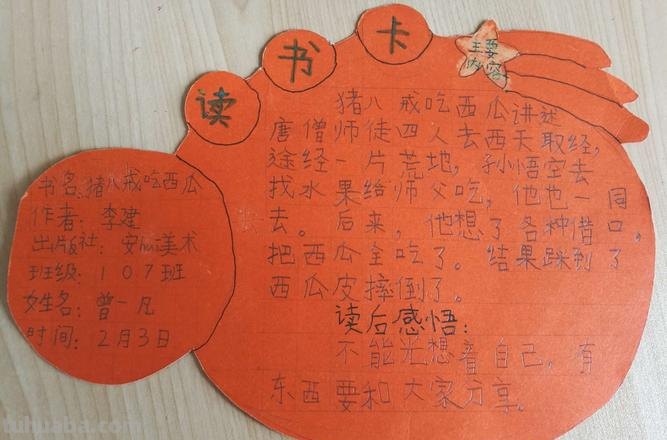 读书卡
主要
内容
猪八戒吃西瓜讲述
唐僧师徒四人去西天取经,
途经一片荒地,孙悟空去
找水果给师父吃,他也一同
去。后来,他想了各种借口,
把西瓜全吃了。结果踩到了
西瓜皮摔倒了。
读后感悟:
不能光想着自己,有
东西要和大家分享。
书名:猪八戒吃西瓜
作者:李建
出版社:安徽美术
班级:107班
姓名:曾一凡
时间:2月3日
tuhuaba.com